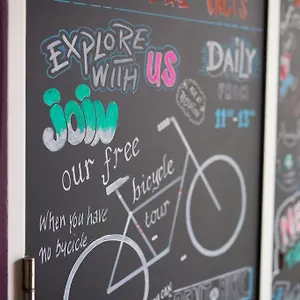 THE FACTS
EXPLORE
WITH US
DAILY
FROM
11-13
JOIN
our free
bicycle
tour
When you have
no bycicle
CAN